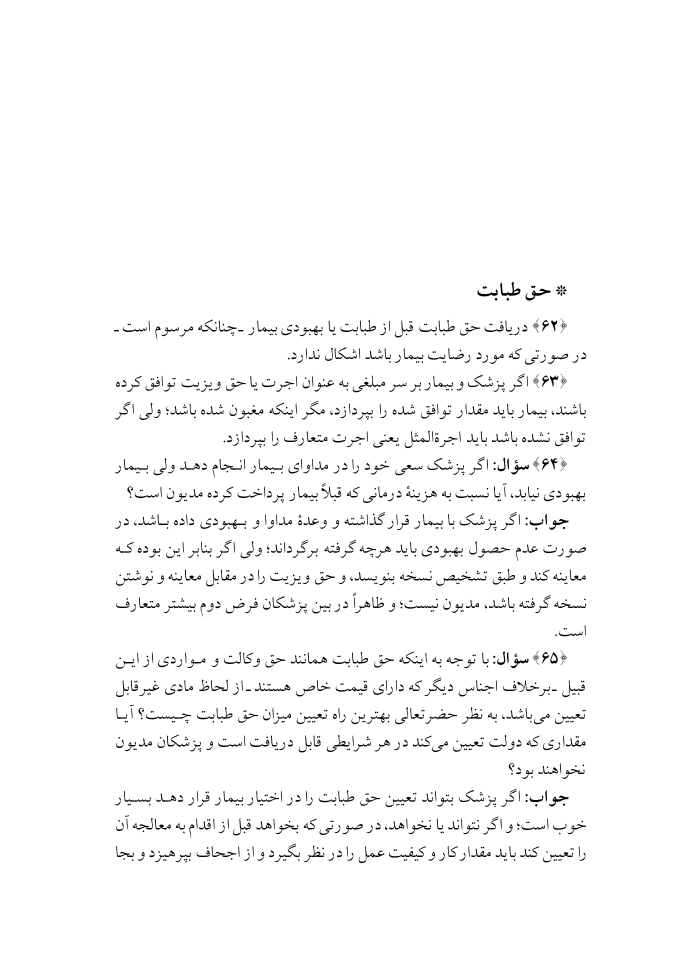 * حق طبابت
﴿۶۲﴾ دریافت حق طبابت قبل از طبابت یا بهبودی بیمار ـ چنانکه مرسوم است ـ
در صورتی که مورد رضایت بیمار باشد اشکال ندارد.
﴿۶۳﴾ اگر پزشک و بیمار بر سر مبلغی به عنوان اجرت یا حق ویزیت توافق کرده
باشند، بیمار باید مقدار توافق شده را بپردازد، مگر اینکه مغبون شده باشد؛ ولی اگر
توافق نشده باشد باید اجرةالمثل یعنی اجرت متعارف را بپردازد.
﴿۶۴﴾ سؤال: اگر پزشک سعی خود را در مداوای بیمار انجام دهد ولی بیمار
بهبودی نیابد، آیا نسبت به هزینهٔ درمانی که قبلاً بیمار پرداخت کرده مدیون است؟
جواب: اگر پزشک با بیمار قرار گذاشته و وعدهٔ مداوا و بهبودی داده باشد، در
صورت عدم حصول بهبودی باید هرچه گرفته برگرداند؛ ولی اگر بنابر این بوده که
معاینه کند و طبق تشخیص نسخه بنویسد، و حق ویزیت را در مقابل معاینه و نوشتن
نسخه گرفته باشد، مدیون نیست؛ و ظاهراً در بین پزشکان فرض دوم بیشتر متعارف
است.
﴿۶۵﴾ سؤال: با توجه به اینکه حق طبابت همانند حق وکالت و مواردی از این
قبیل ـ برخلاف اجناس دیگر که دارای قیمت خاص هستند ـ از لحاظ مادی غیرقابل
تعیین می‌باشد، به نظر حضرتعالی بهترین راه تعیین میزان حق طبابت چیست؟ آیا
مقداری که دولت تعیین می‌کند در هر شرایطی قابل دریافت است و پزشکان مدیون
نخواهند بود؟
جواب: اگر پزشک بتواند تعیین حق طبابت را در اختیار بیمار قرار دهد بسیار
خوب است؛ و اگر نتواند یا نخواهد، در صورتی که بخواهد قبل از اقدام به معالجه آن
را تعیین کند باید مقدار کار و کیفیت عمل را در نظر بگیرد و از اجحاف بپرهیزد و بجا